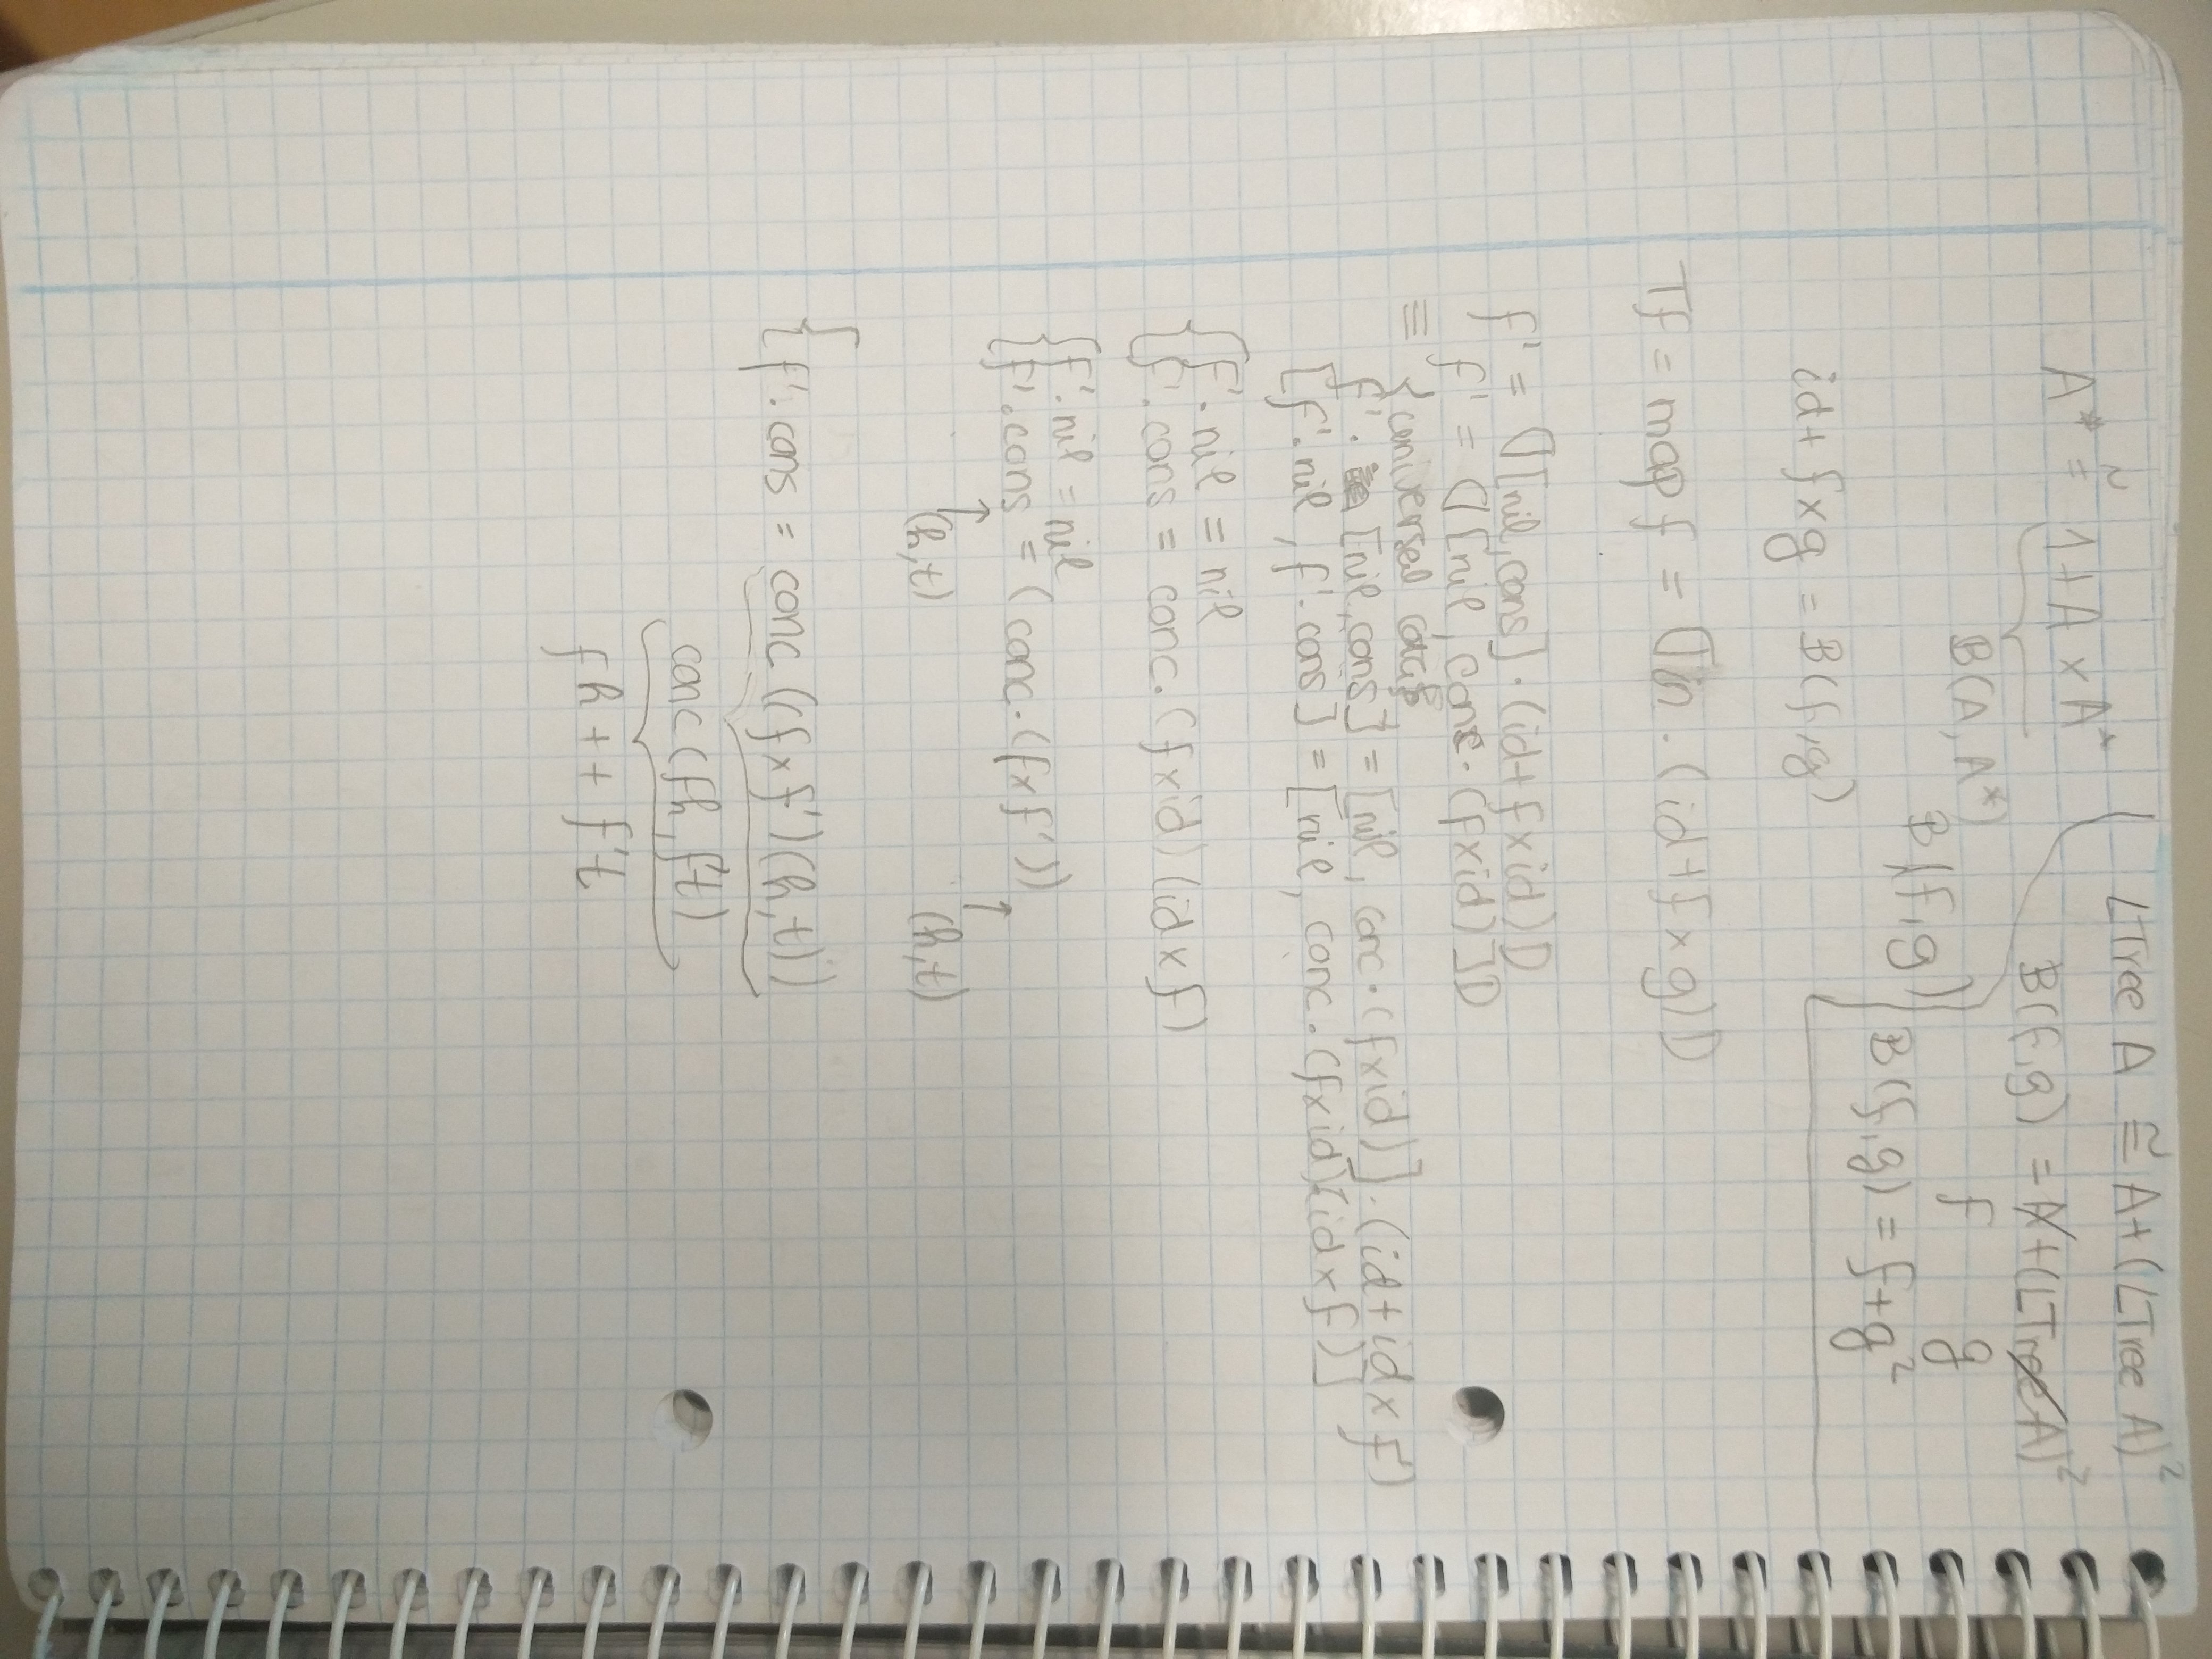 A* ≅ 1+A × A*
B(A, A*)
B(f,g)
LTree A ≅ A+(LTree A)²
B(f,g) = A+(LTree A)²
f g
B(f,g) = f+g²
id+f×g = B(f,g)
Tf = map f = ⦇in . (id+f×g)⦈
f' = ⦇[nil,cons] . (id+f×id)⦈
f' = ⦇[nil, conc. (f×id)]⦈
≡ {universal cata}
f'. [nil,cons] = [nil, conc.(f×id)].(id+id×f')
[f'.nil, f'.cons] = [nil, conc.(f×id).(id×f)]
{f'.nil = nil
{f'.cons = conc.(f×id)(id×f)
{f'.nil = nil
{f'.cons = (conc.(f×f'))
↑ ↑
(h,t) (h,t)
{f'.cons = conc((f×f')(h,t))
conc(fh, f't)
fh ++ f't